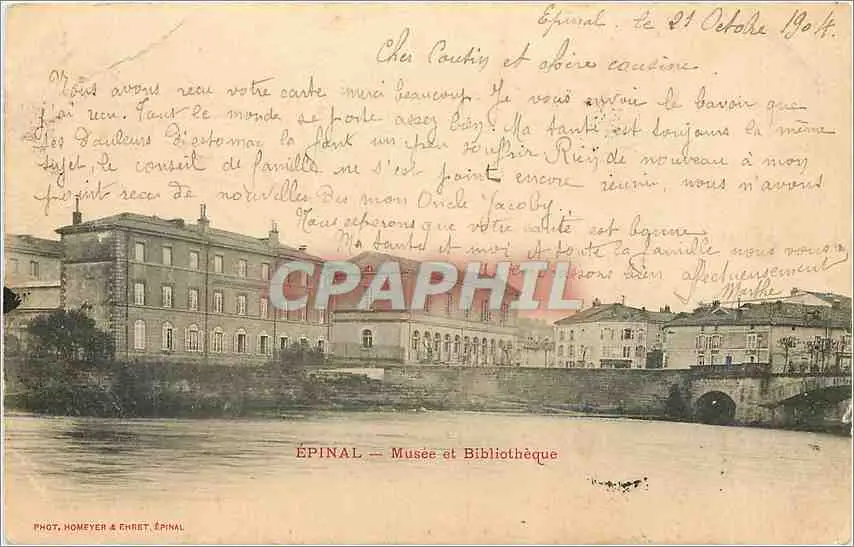 Epinal. le 21 Octobre 1904.
Cher Cousin et chère cousine
Nous avons recu votre carte merci beaucoup. Je vous envoie le bavoir que
j'ai recu. Tout le monde se porte assez bien. Ma santé est toujours la même
les douleurs d'estomac la font un peu souffrir Rien de nouveau à mon
sujet, le conseil de famille ne s'est point encore réunir, nous n'avons
point recu de nouvelles des mon Oncle Jacoby.
Nous esperons que votre santé est bonne
Ma tante et moi et toute la famille nous vous
bien affectueusement
Marthe
CPAPHIL
ÉPINAL — Musée et Bibliothèque
PHOT. HOMEYER & EHRET, ÉPINAL